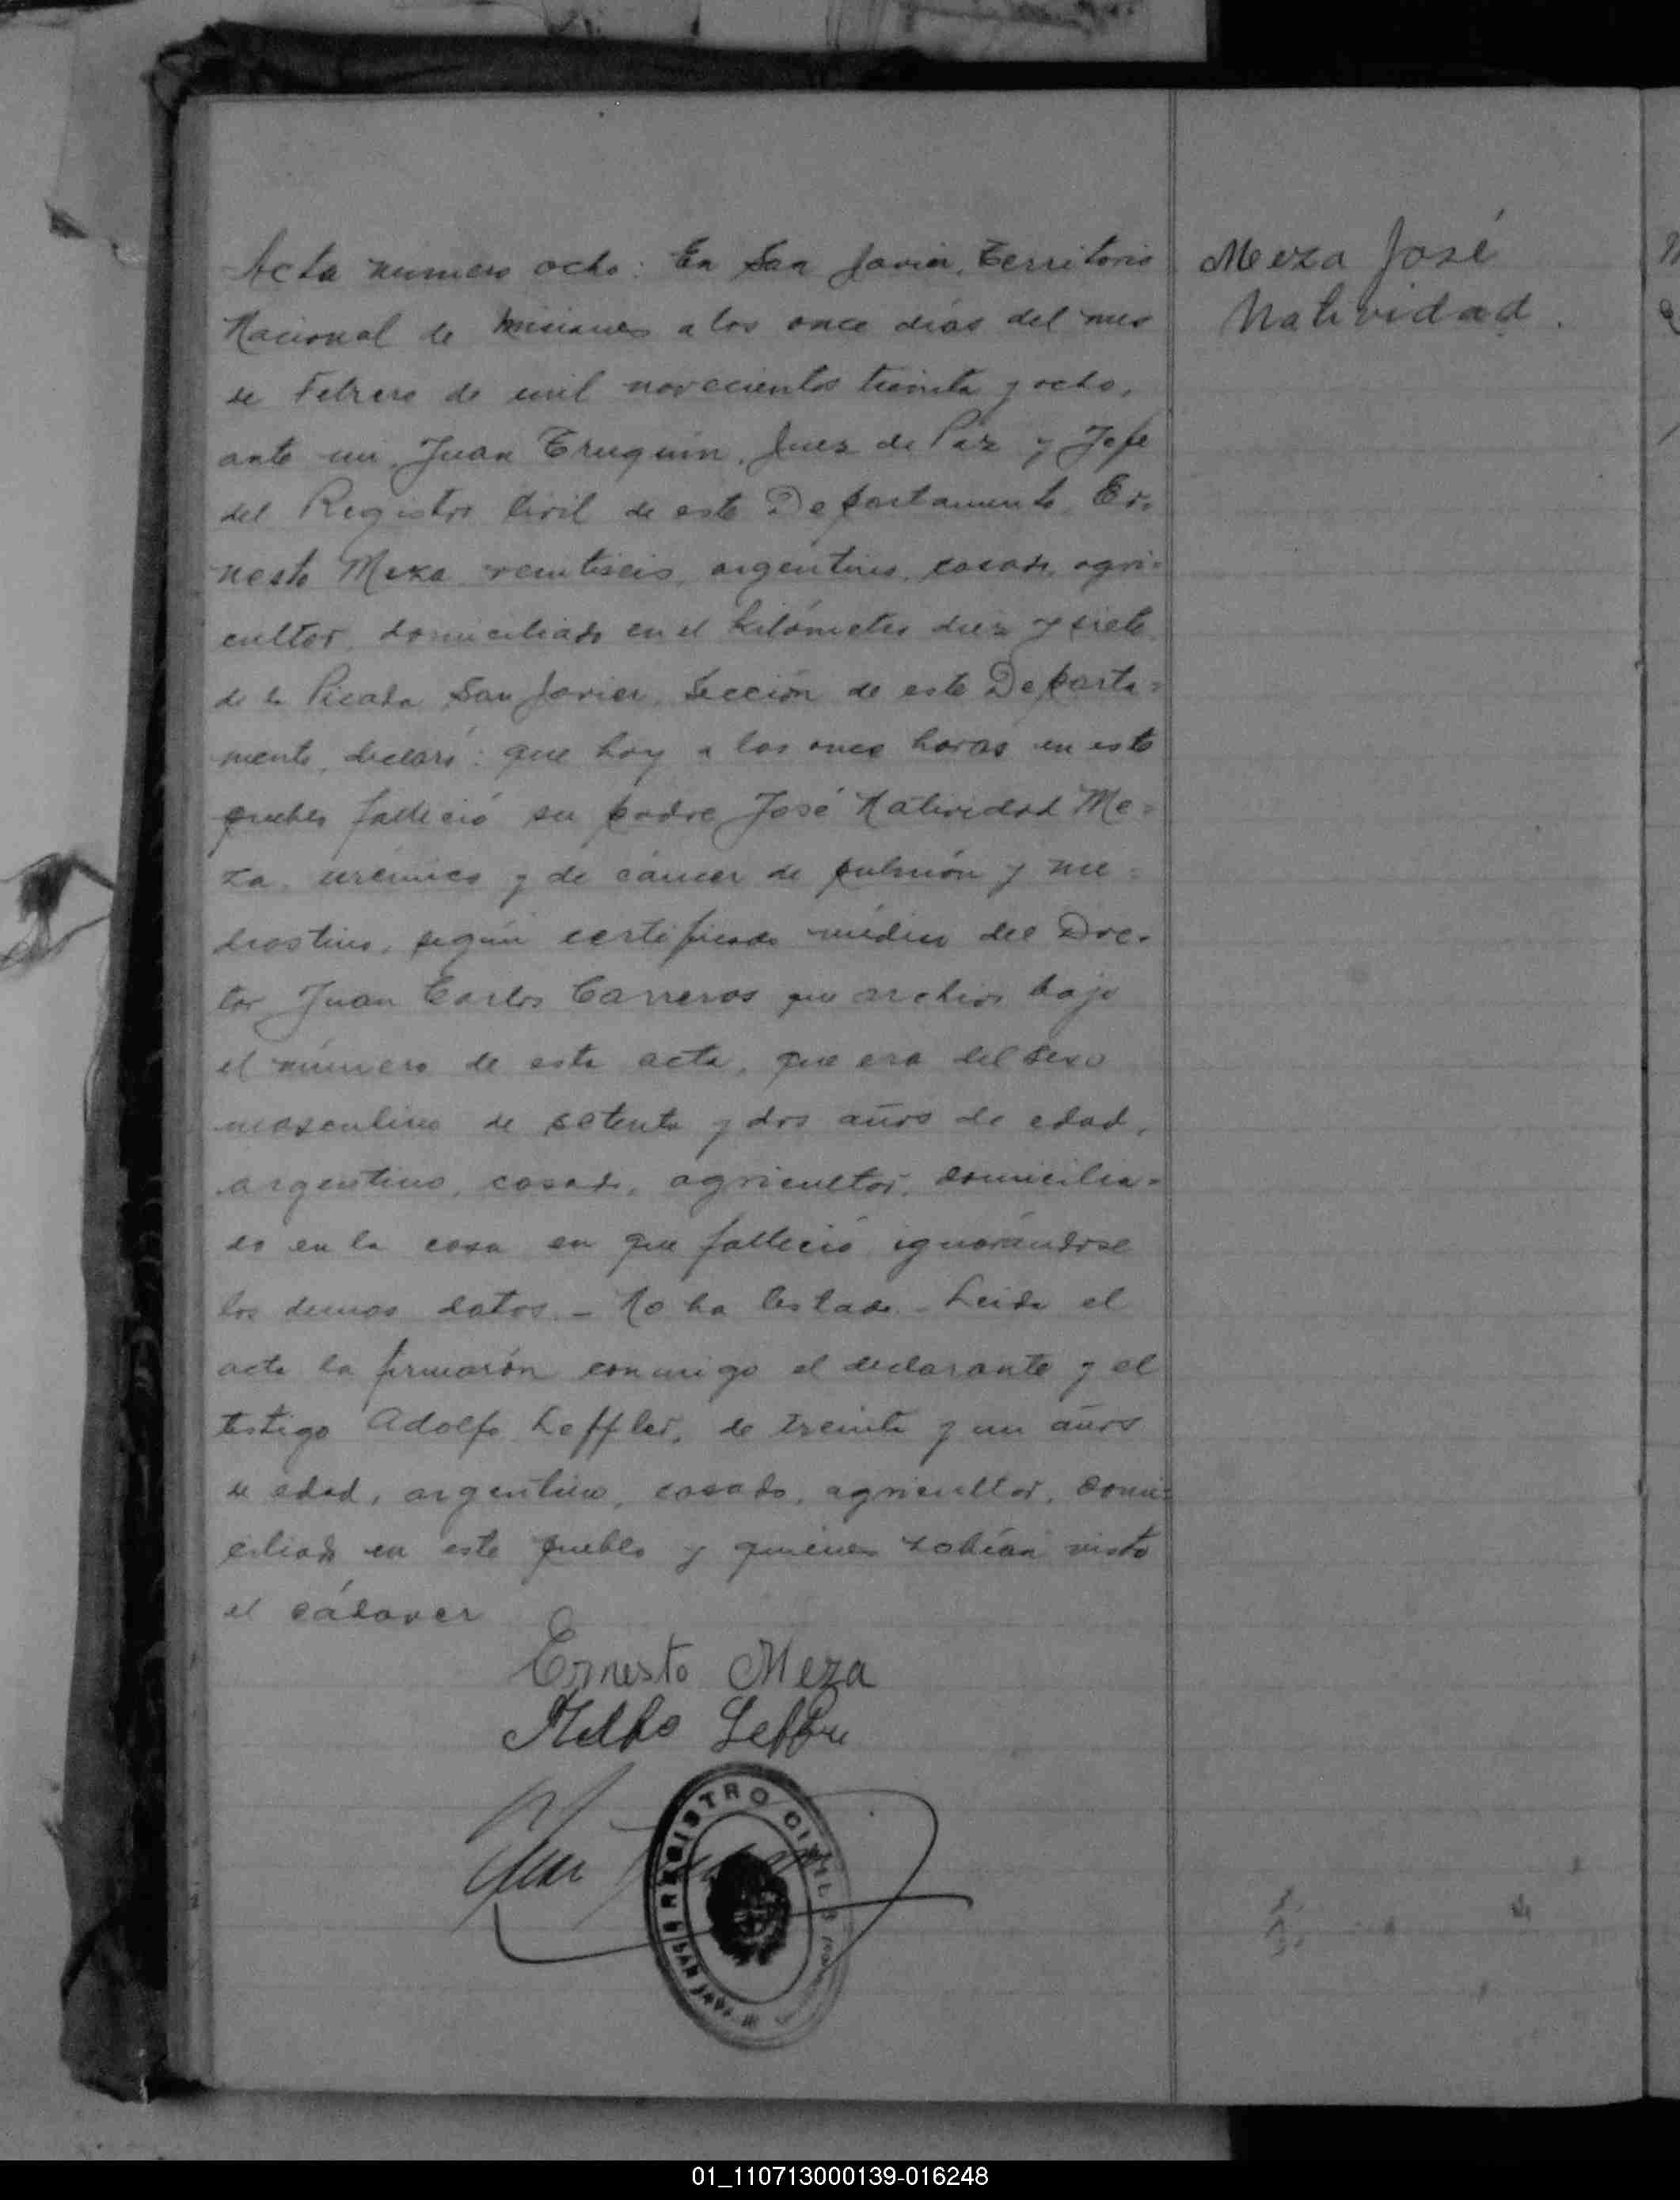 Acta numero ocho: En San Javier, Territorio
Nacional de Misiones a los once días del mes
de Febrero de mil novecientos treinta y ocho,
ante mi, Juan Truquin, Juez de Paz y Jefe
del Registro Civil de este Departamento, Er-
nesto Meza veintiseis, argentino, casado, agri-
cultor, domiciliado en el kilómetro diez y siete
de la Picada San Javier, Sección de este Departa-
mento, declaró: que hoy a las once horas en este
pueblo falleció su padre José Natividad Me-
za, urémico y de cáncer de pulmón y me-
diastino, según certificado médico del Doc-
tor Juan Carlos Carreras que archivo bajo
el número de esta acta, que era del sexo
masculino de setenta y dos años de edad,
argentino, casado, agricultor, domicilia-
do en la casa en que falleció ignorándose
los demas datos. - No ha testado. - Leida el
acta la firmarón conmigo el declarante y el
testigo Adolfo Leffler, de treinta y un años
de edad, argentino, casado, agricultor, domi-
ciliado en este pueblo y quienes habían visto
el cádaver
Ernesto Meza
Juan
REGISTRO CIVIL
SAN JAVIER
Meza José
Natividad.
01_110713000139-016248